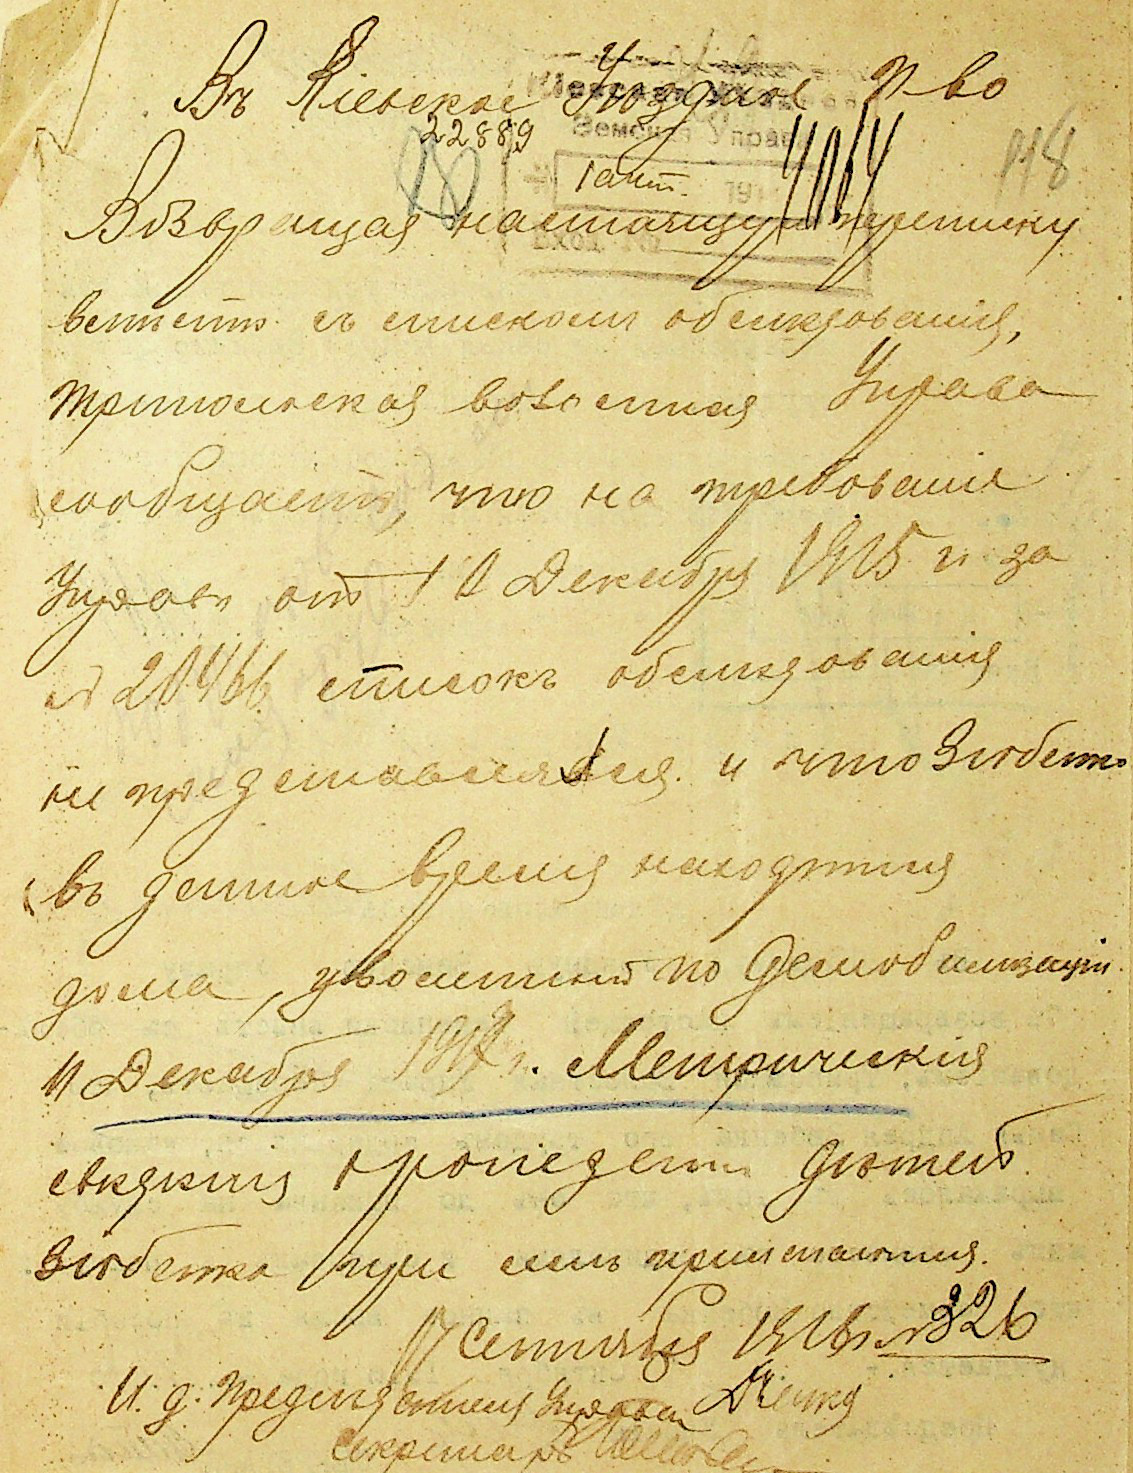 Въ Кіевское Уѣздное П-во
22889
Земская Управа
1 Окт. 191
Вход. №
118
Возвращая настоящую переписку
вмѣстѣ съ спискомъ обслѣдованія,
Трипольская волостная Управа
сообщаетъ, что на требованіе
Управы отъ 10 Декабря 1915 г. за
№ 20466 списокъ обслѣдованія
не представлялся и что Зюбенко
въ данное время находится
дома, уволенный по демобилизаціи
11 Декабря 1917 г. Метрическія
свѣдѣнія о рожденіи дѣтей
Зюбенка при семъ прилагаются.
17 Сентября 1918 г. № 326
И. д. Предсѣдателя Управы
Секретарь